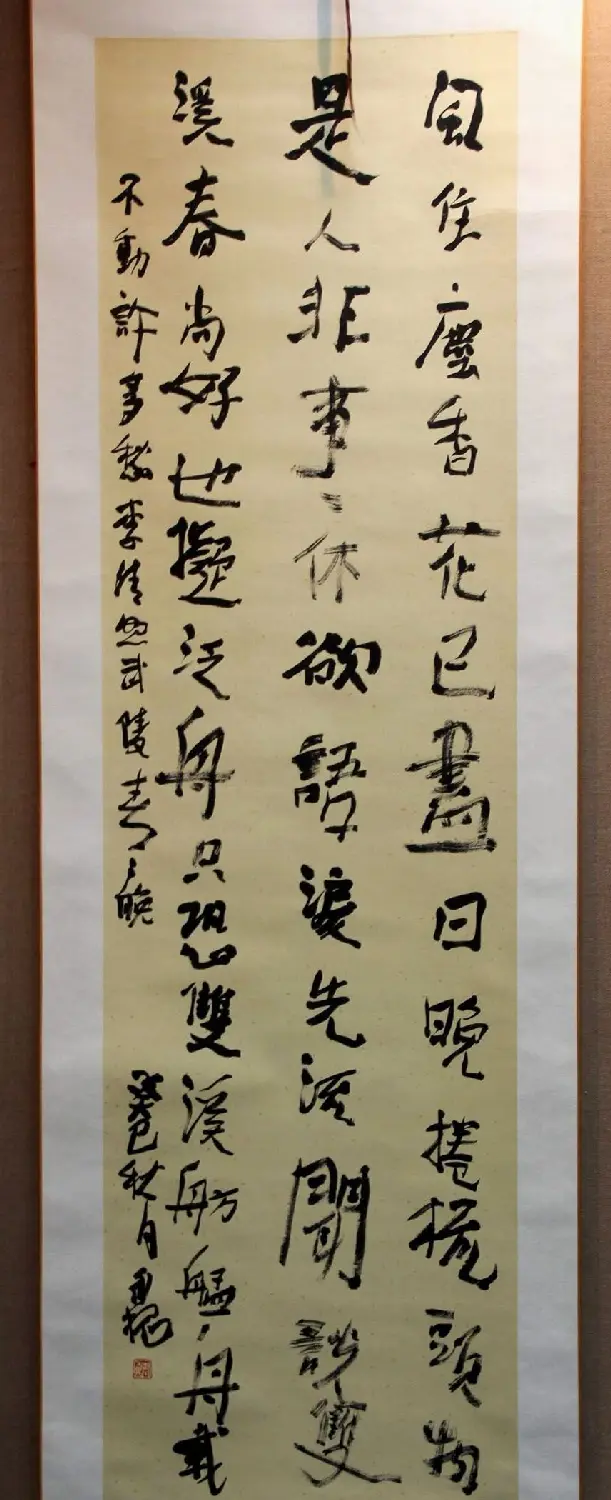 風住塵香花已盡日晚捲梳頭物
是人非事〻休欲語淚先流聞說雙
溪春尚好也擬泛舟只恐雙溪舴艋〻舟載
不動許多愁李清照武陵春〻晚
秋月